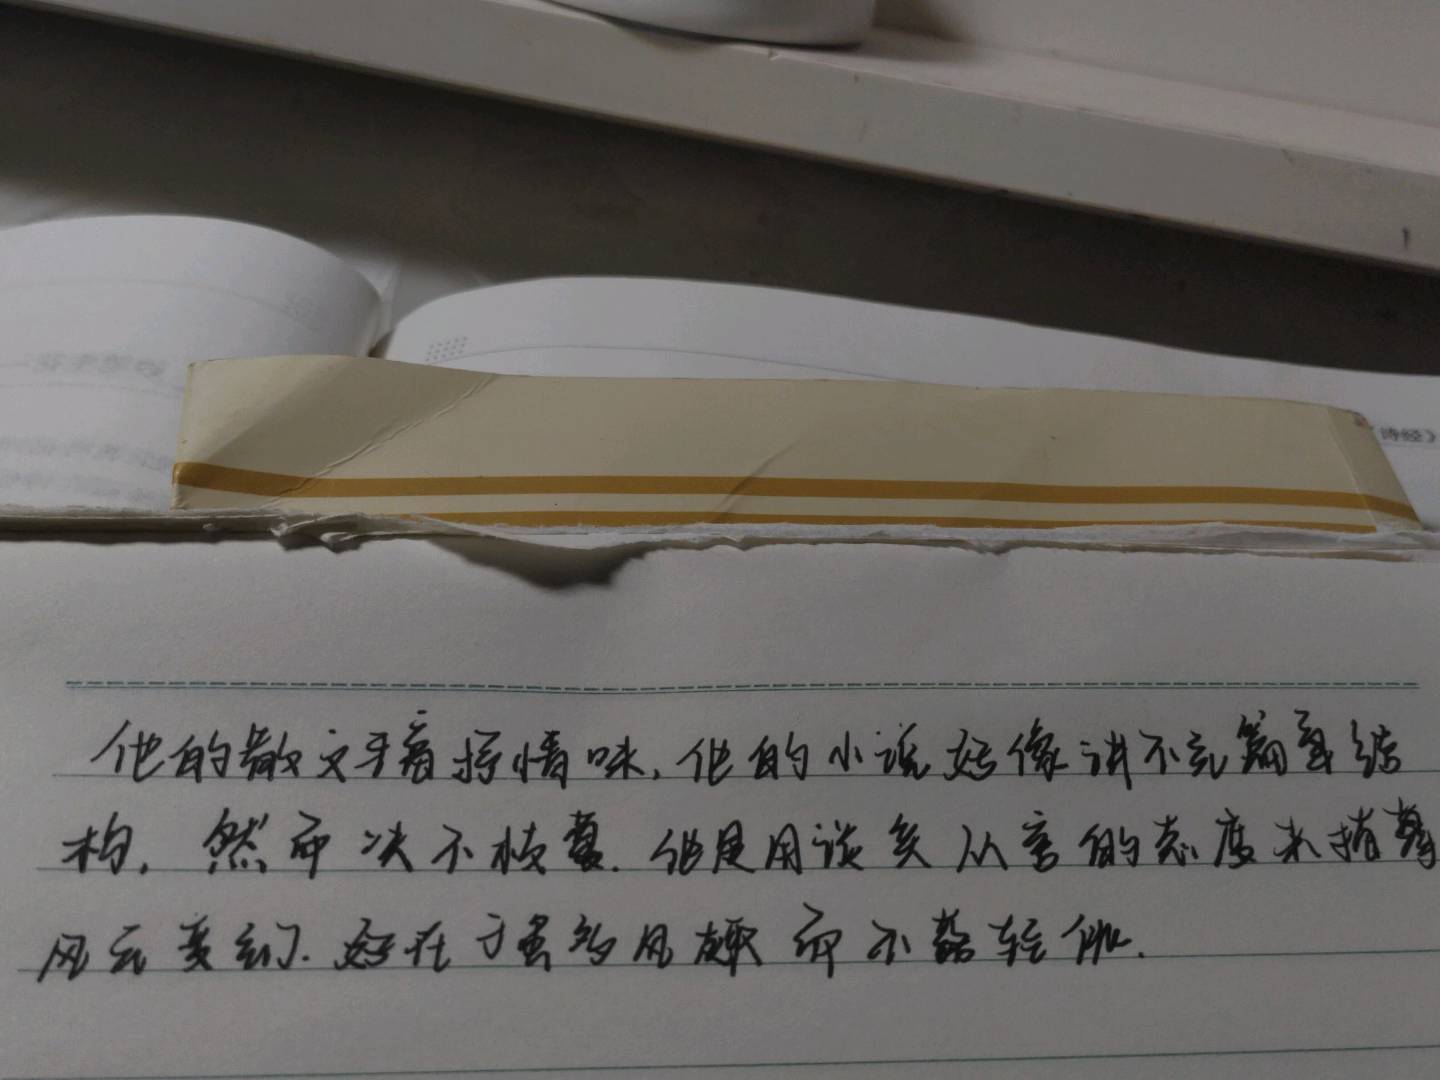 他的散文于有抒情味，他的小说好像讲不完篇章结
构，然而决不枝蔓.他是用谈笑从容的态度来描摹
风云变幻.好在于虽多风趣而不落轻佻.